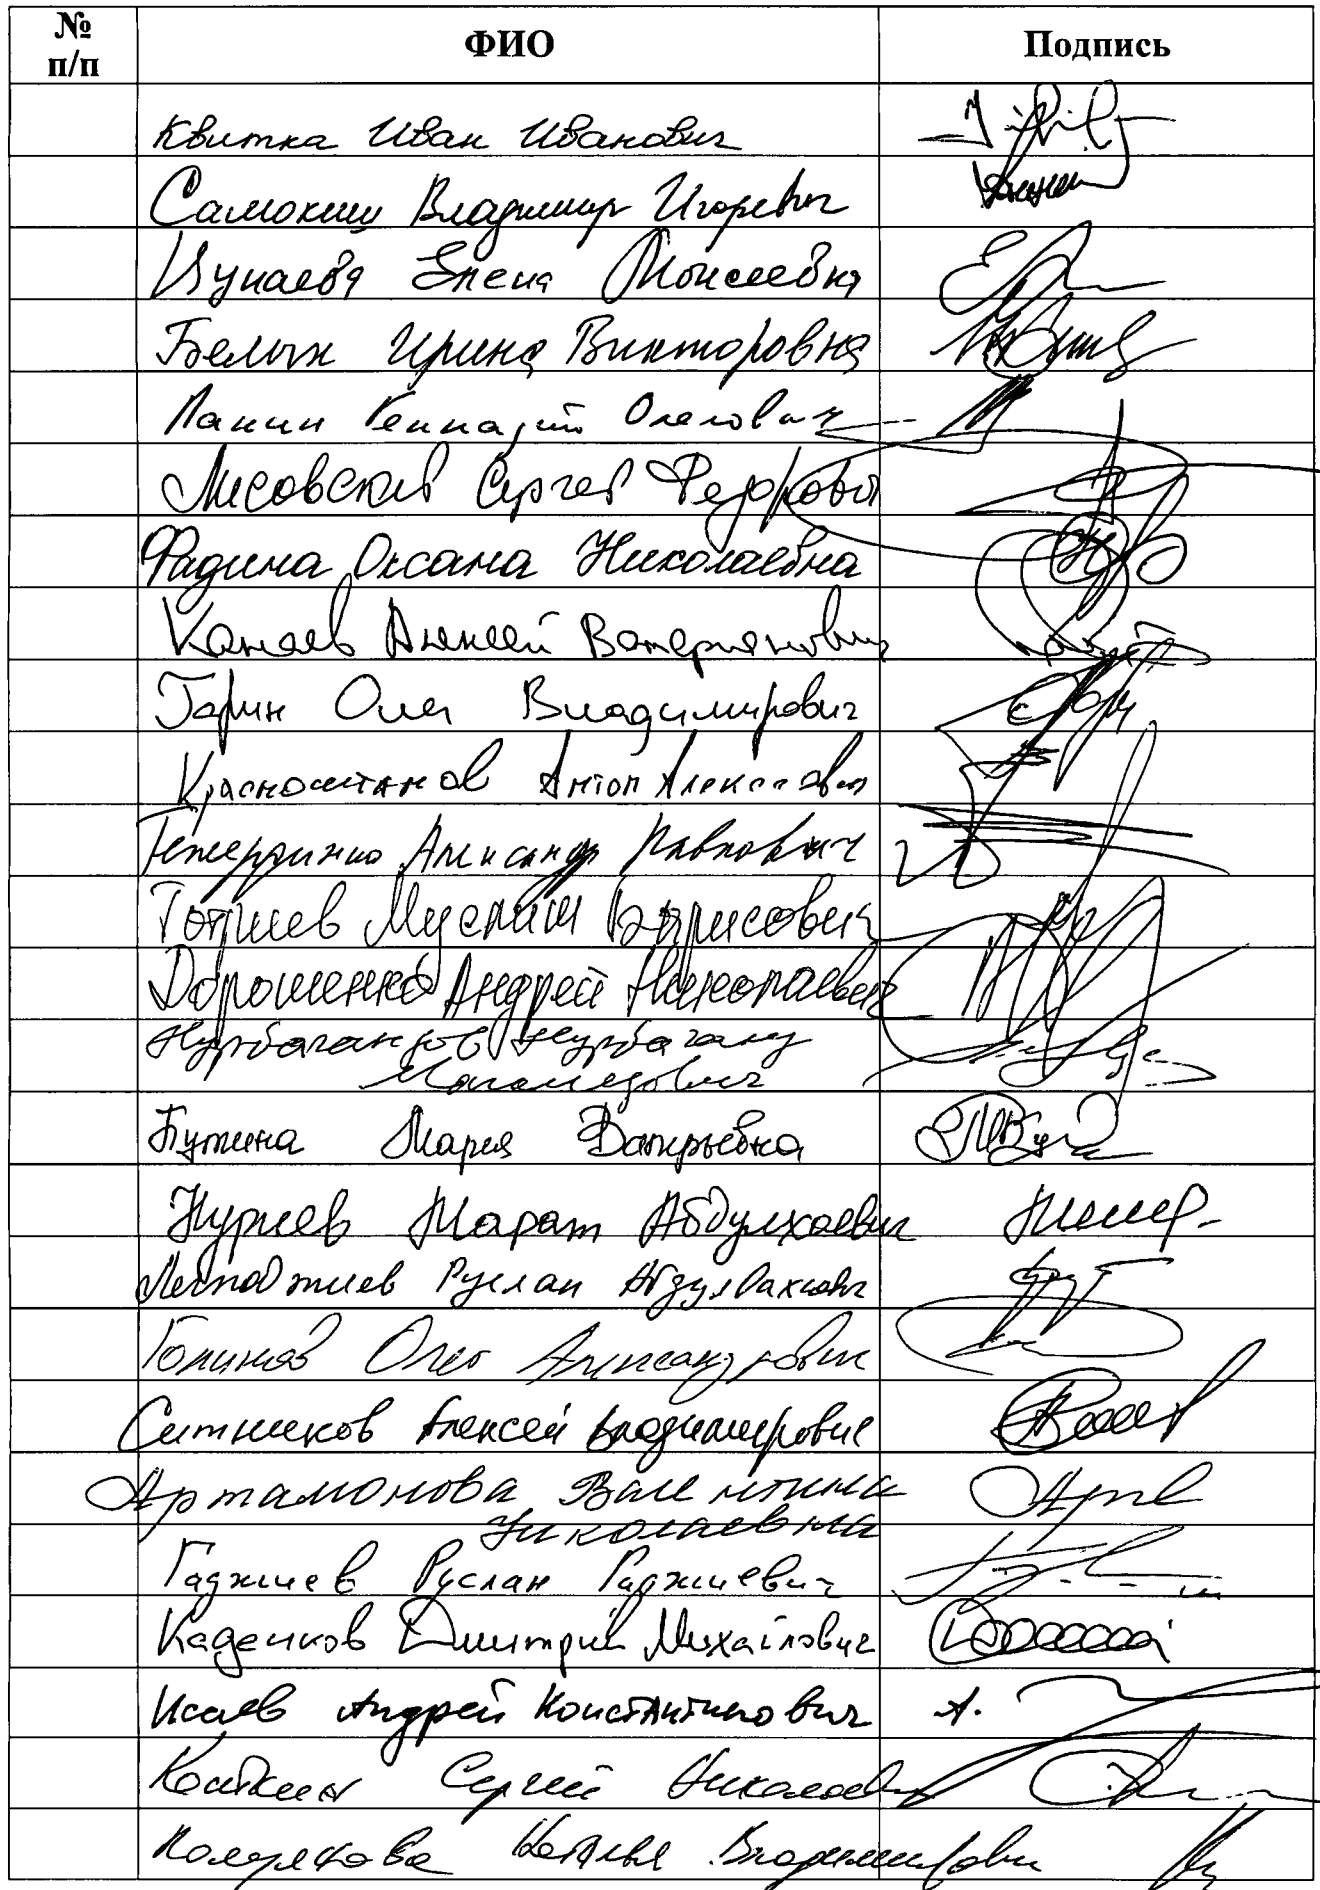 №
п/п
ФИО
Подпись
Квитка Иван Иванович
Самокиш Владимир Игоревич
Цунаева Елена Моисеевна
Белых Ирина Викторовна
Панин Геннадий Олегович
Лисовский Сергей Федорович
Фадина Оксана Николаевна
Канаев Алексей Валерианович
Гарин Олег Владимирович
Красноштанов Антон Алексеевич
Александр Павлович
Тотриев Муслим Борисович
Дорошенко Андрей Николаевич
Нурбагандов Нурбаганд
Магомедович
Бутина Мария Валерьевна
Нуриев Марат Абдулхаевич
Руслан Абдулвахидович
Голиков Олег Александрович
Ситников Алексей Владимирович
Артамонова Валентина
Николаевна
Гаджиев Руслан Гаджиевич
Каденков Дмитрий Михайлович
Исаев Андрей Константинович
Кошкин Сергей Николаевич
Полуянова Наталья Владимировн